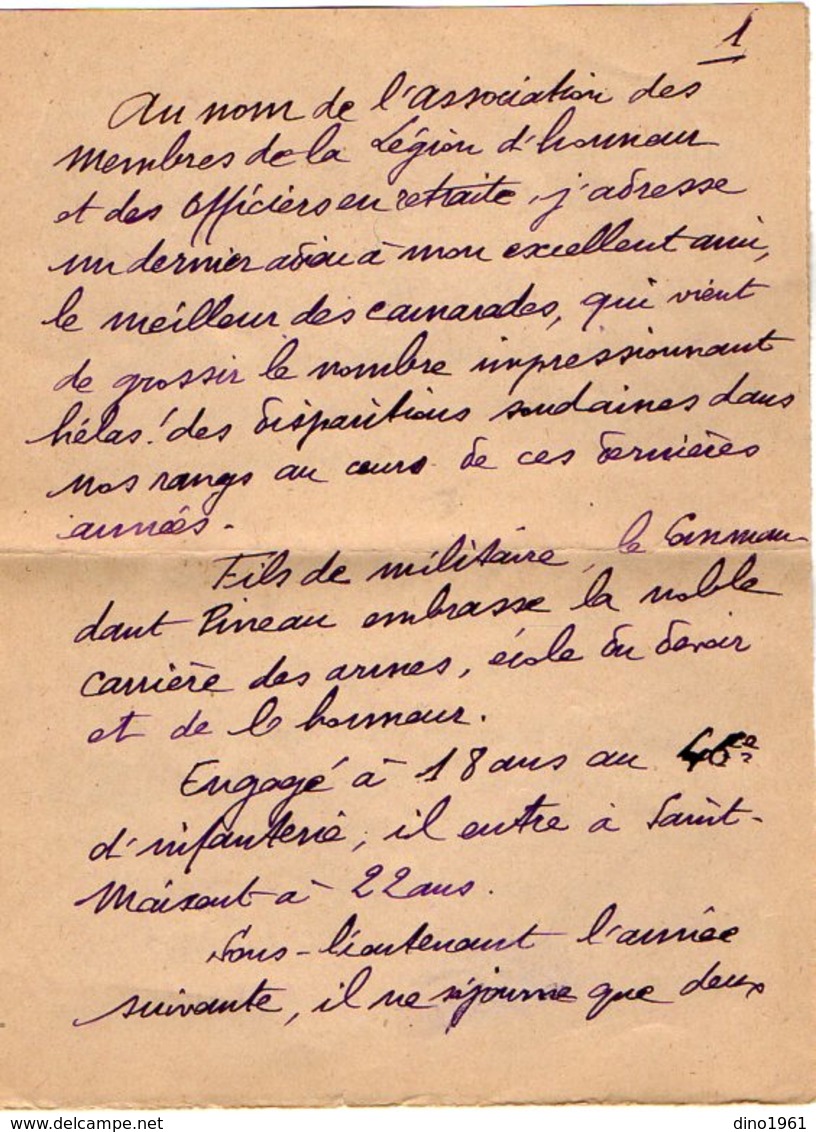 1
Au nom de l'association des
membres de la Légion d'honneur
et des officiers en retraite, j'adresse
un dernier adieu à mon excellent ami,
le meilleur des camarades, qui vient
de grossir le nombre impressionnant
hélas! des disparitions soudaines dans
nos rangs au cours de ces dernières
années.
Fils de militaire, le Comman-
dant Pineau embrasse la noble
carrière des armes, école du devoir
et de l'honneur.
Engagé à 18 ans au
d'infanterie, il entre à Saint-
Maixent à 22 ans.
Sous-lieutenant l'année
suivante, il ne séjourne que deux
dino1961